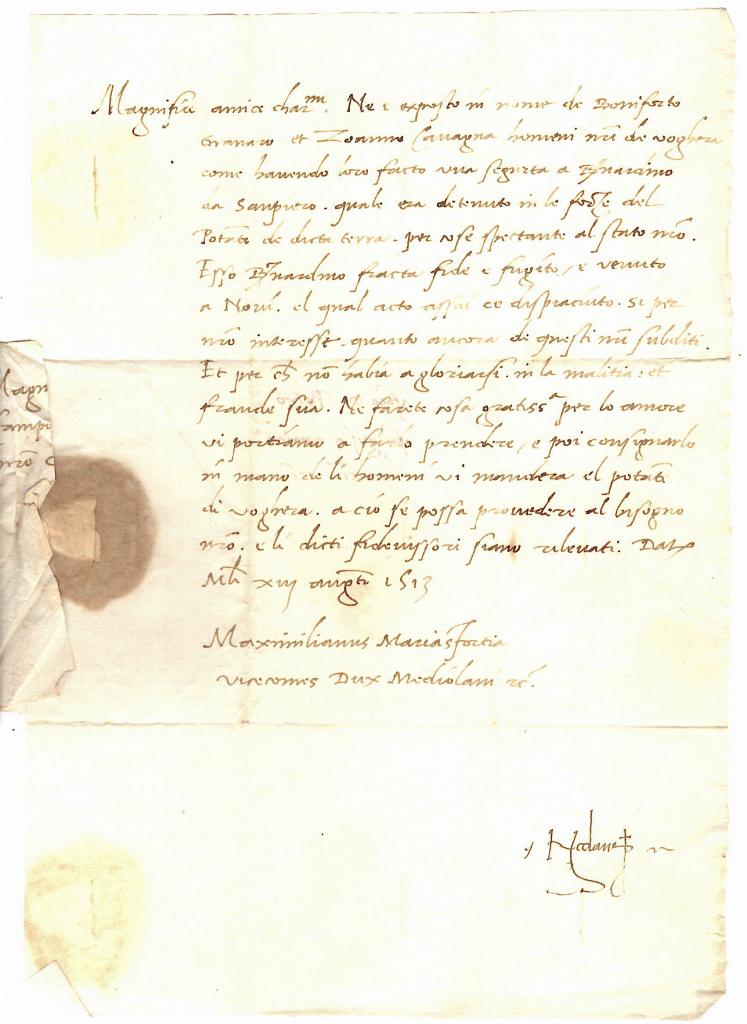 Magnifice amice char.mu Ne e exposto in nome de Boniforto
Granaro et Zoanno Cavagna homeni nri de voghera
come havendo loro facto una segurta a Bernardino
da Sanpiero. quale era detenuto in le forze del
Potate de dicta terra. per cose spectante al stato nro.
Esso Bernardino fracta fide e fugito, e venuto
a Novi. el qual acto assai ce dispiaciuto. Si per
nro interesse. quanto ancora de questi nri subditi.
Et per ch non habia a gloriarsi. in la malitia: et
fraude sua. Ne farete cosa gratiss.a per lo amore
vi portiamo a farlo prendere, e poi consignarlo
in mano de li homeni vi mandera el potate
di voghera. a cio se possa provedere al bisogno
nro. e li dicti fideiussori siano rilevati. Dat
Mli xvij augti 1513
Maximilianus Maria sfortia
vicecomes Dux Mediolani rc.
Magn
Sampi
nro